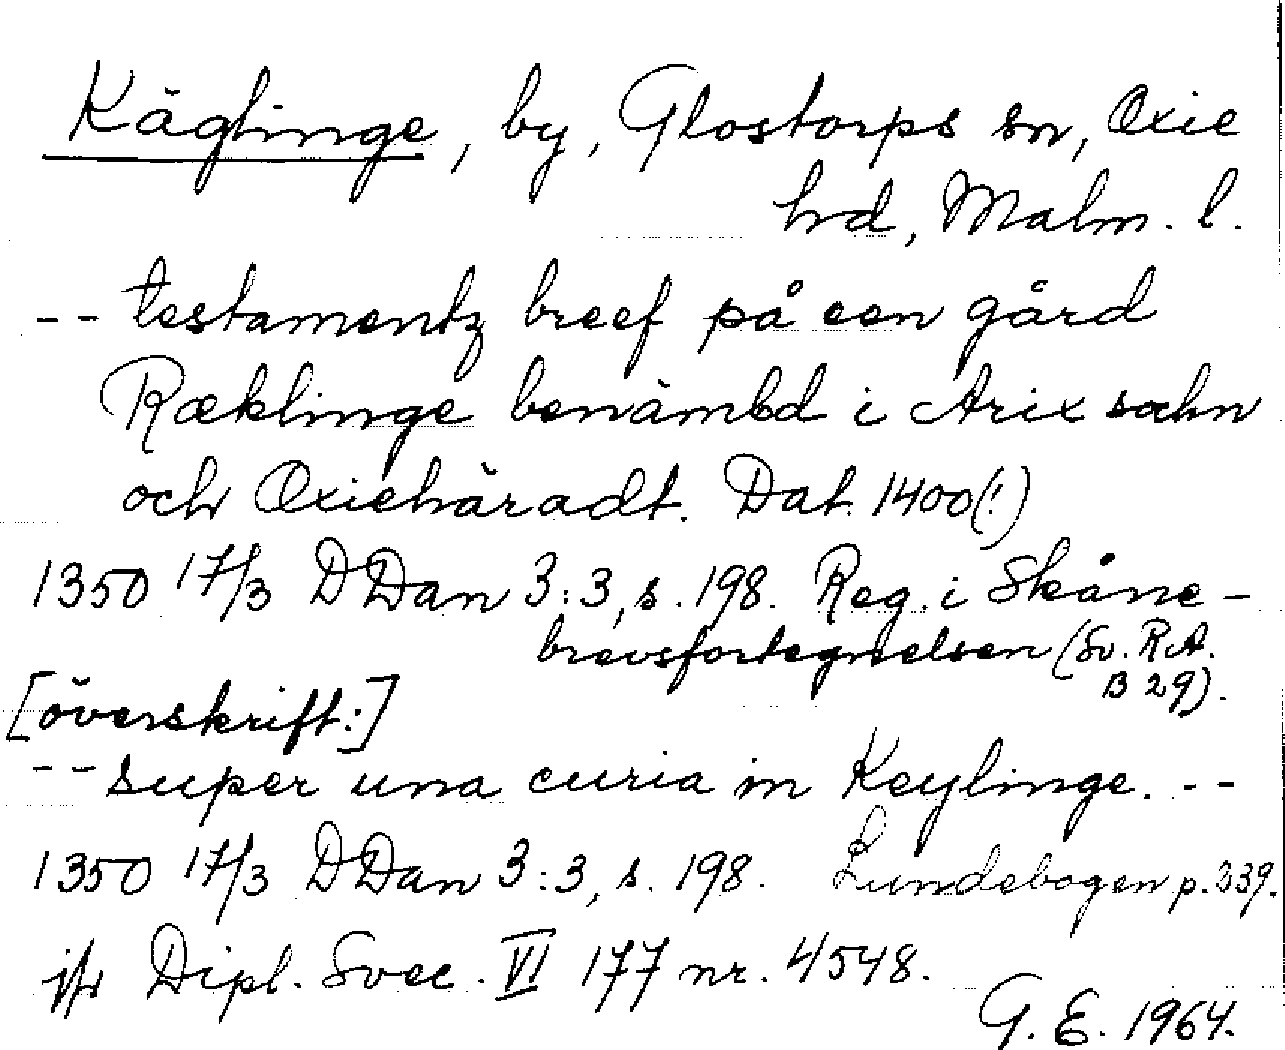 Käglinge, by, Glostorps sn, Oxie
hrd, Malm. l.
-- testamentz breef på een gård
Ræklinge benämbd i Arix sochn
och Oxiehäradt. Dat. 1400(!)
1350 17/3 DDan 3:3, s. 198. Reg. i Skåne-
brevsfortegnelsen (Sv. R.A.
B 29).
[överskrift:]
-- super una curia in Keylinge. --
1350 17/3 DDan 3:3, s. 198. Lundebogen p. 339.
jfr Dipl. Svec. VI 177 nr. 4548.
G. E. 1964.